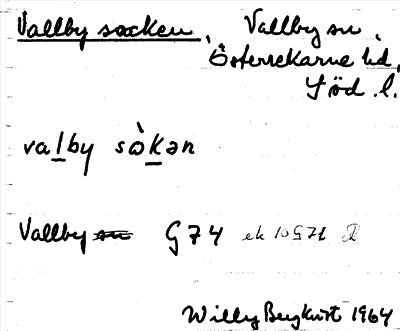 Vallby socken, Vallby sn,
Österrekarne hd,
Söd. l.
valby sòkən
Vallby sn G74 ek 10G71
Willy Bergkvist 1964